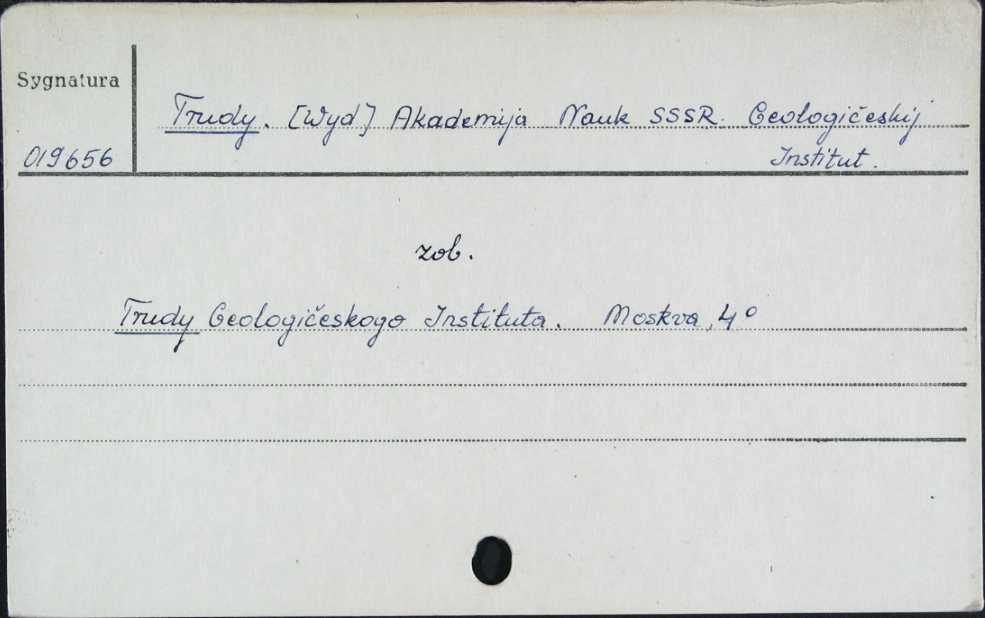 Sygnatura
Trudy. [Wyd] Akademija Nauk SSSR. Geologičeskij
019656 Institut.
zob.
Trudy Geologičeskogo Instituta. Moskva, 4°